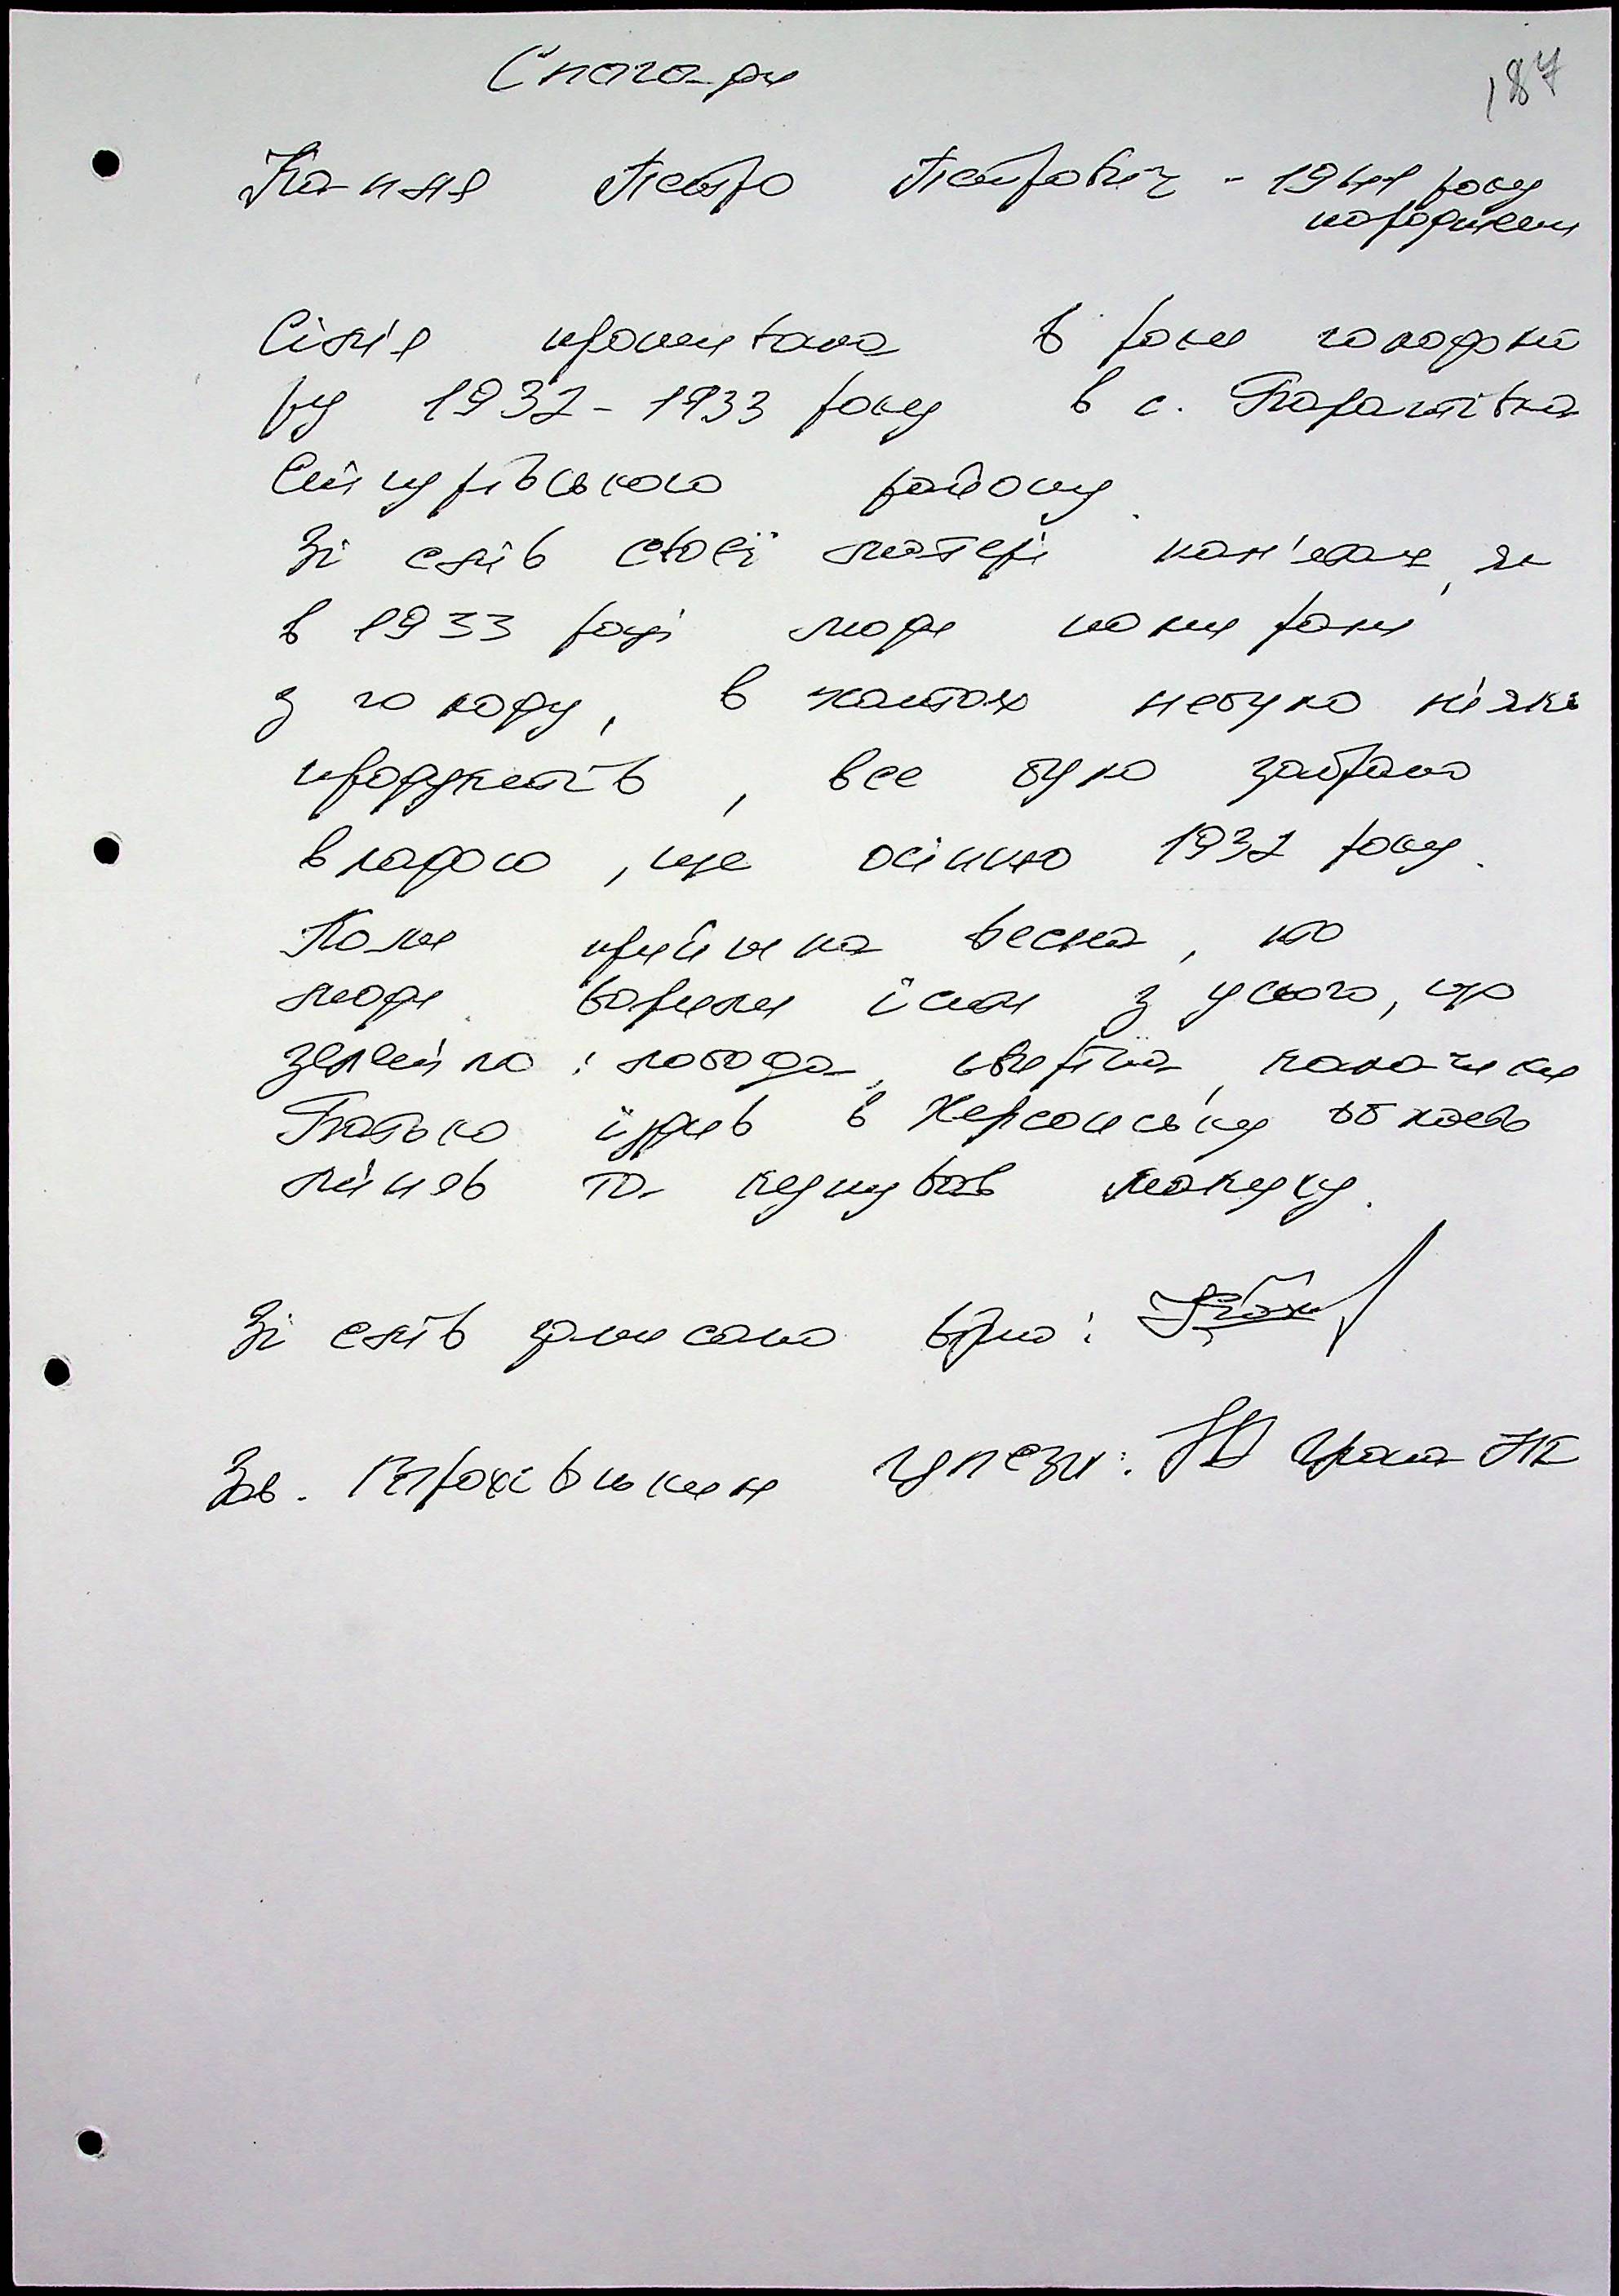 Спогади
187
Петро Петрович - 1944 року
народження
Сім'я проживала в роки голодомо
ру 1932 - 1933 року в с. Баратівка
Снігурівського району.
Зі слів своєї матері пам'ятаю, як
в 1933 році люди помирали
з голоду, в хатах небуло ніяких
продуктів, все було забрано
владою, ще осінню 1932 року.
Коли прийшла весна, то
люди варили їсти з усього, що
зеленіло: лобода, калачики
Батько їздив в Херсонську область
міняв та купував макуху.
Зі слів записано вірно:
Зв.